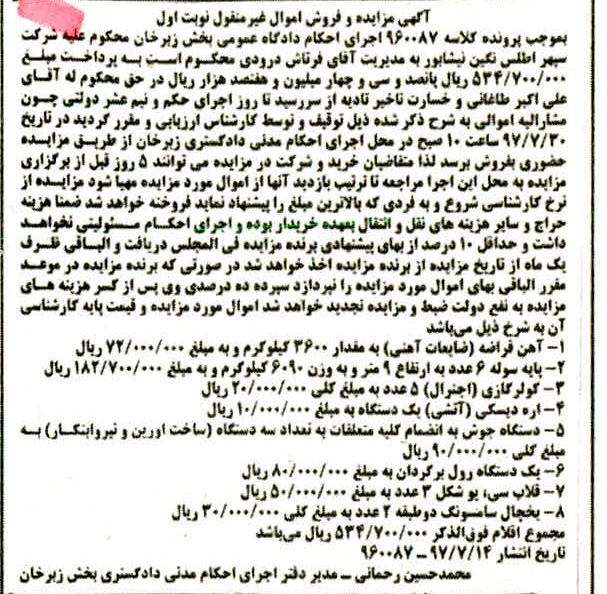 آگهی مزایده و فروش اموال غیرمنقول نوبت اول
بموجب پرونده کلاسه ۹۶۰۰۸۷ اجرای احکام دادگاه عمومی بخش زبرخان محکوم علیه شرکت
سپهر اطلس نگین نیشابور به مدیریت آقای فرتاش درودی محکوم است به پرداخت مبلغ
۵۳۴/۷۰۰/۰۰۰ ریال پانصد و سی و چهار میلیون و هفتصد هزار ریال در حق محکوم له آقای
علی اکبر طاغانی و خسارت تاخیر تادیه از سررسید تا روز اجرای حکم و نیم عشر دولتی چون
مشارالیه اموالی به شرح ذکر شده ذیل توقیف و توسط کارشناس ارزیابی و مقرر گردید در تاریخ
۹۷/۷/۳۰ ساعت ۱۰ صبح در محل اجرای احکام مدنی دادگستری زبرخان از طریق مزایده
حضوری بفروش برسد لذا متقاضیان خرید و شرکت در مزایده می توانند ۵ روز قبل از برگزاری
مزایده به محل این اجرا مراجعه تا ترتیب بازدید آنها از اموال مورد مزایده مهیا شود مزایده از
نرخ کارشناسی شروع و به فردی که بالاترین مبلغ را پیشنهاد نماید فروخته خواهد شد ضمنا هزینه
حراج و سایر هزینه های نقل و انتقال بعهده خریدار بوده و اجرای احکام مسئولیتی نخواهد
داشت و حداقل ۱۰ درصد از بهای پیشنهادی برنده مزایده فی المجلس دریافت و الباقی ظرف
یک ماه از تاریخ مزایده از برنده مزایده اخذ خواهد شد در صورتی که برنده مزایده در موعد
مقرر الباقی بهای اموال مورد مزایده را نپردازد سپرده ده درصدی وی پس از کسر هزینه های
مزایده به نفع دولت ضبط و مزایده تجدید خواهد شد اموال مورد مزایده و قیمت پایه کارشناسی
آن به شرح ذیل می‌باشد
۱- آهن قراضه (ضایعات آهنی) به مقدار ۳۶۰۰ کیلوگرم و به مبلغ ۷۲/۰۰۰/۰۰۰ ریال
۲- پایه سوله ۶ عدد به ارتفاع ۹ متر و به وزن ۶۰۹۰ کیلوگرم و به مبلغ ۱۸۲/۷۰۰/۰۰۰ ریال
۳- کولرگازی (اجنرال) ۵ عدد به مبلغ کلی ۲۰/۰۰۰/۰۰۰ ریال
۴- اره دیسکی (آتشی) یک دستگاه به مبلغ ۱۰/۰۰۰/۰۰۰ ریال
۵- دستگاه جوش به انضمام کلیه متعلقات به تعداد سه دستگاه (ساخت اورین و نیروابتکار) به
مبلغ کلی ۹۰/۰۰۰/۰۰۰ ریال
۶- یک دستگاه رول برگردان به مبلغ ۸۰/۰۰۰/۰۰۰ ریال
۷- قلاب سی، یو شکل ۳ عدد به مبلغ ۵۰/۰۰۰/۰۰۰ ریال
۸- یخچال سامسونگ دوطبقه ۲ عدد به مبلغ کلی ۳۰/۰۰۰/۰۰۰ ریال
مجموع اقلام فوق‌الذکر ۵۳۴/۷۰۰/۰۰۰ ریال می‌باشد
تاریخ انتشار ۹۷/۷/۱۴ – ۹۶۰۰۸۷
محمدحسین رحمانی – مدیر دفتر اجرای احکام مدنی دادگستری بخش زبرخان